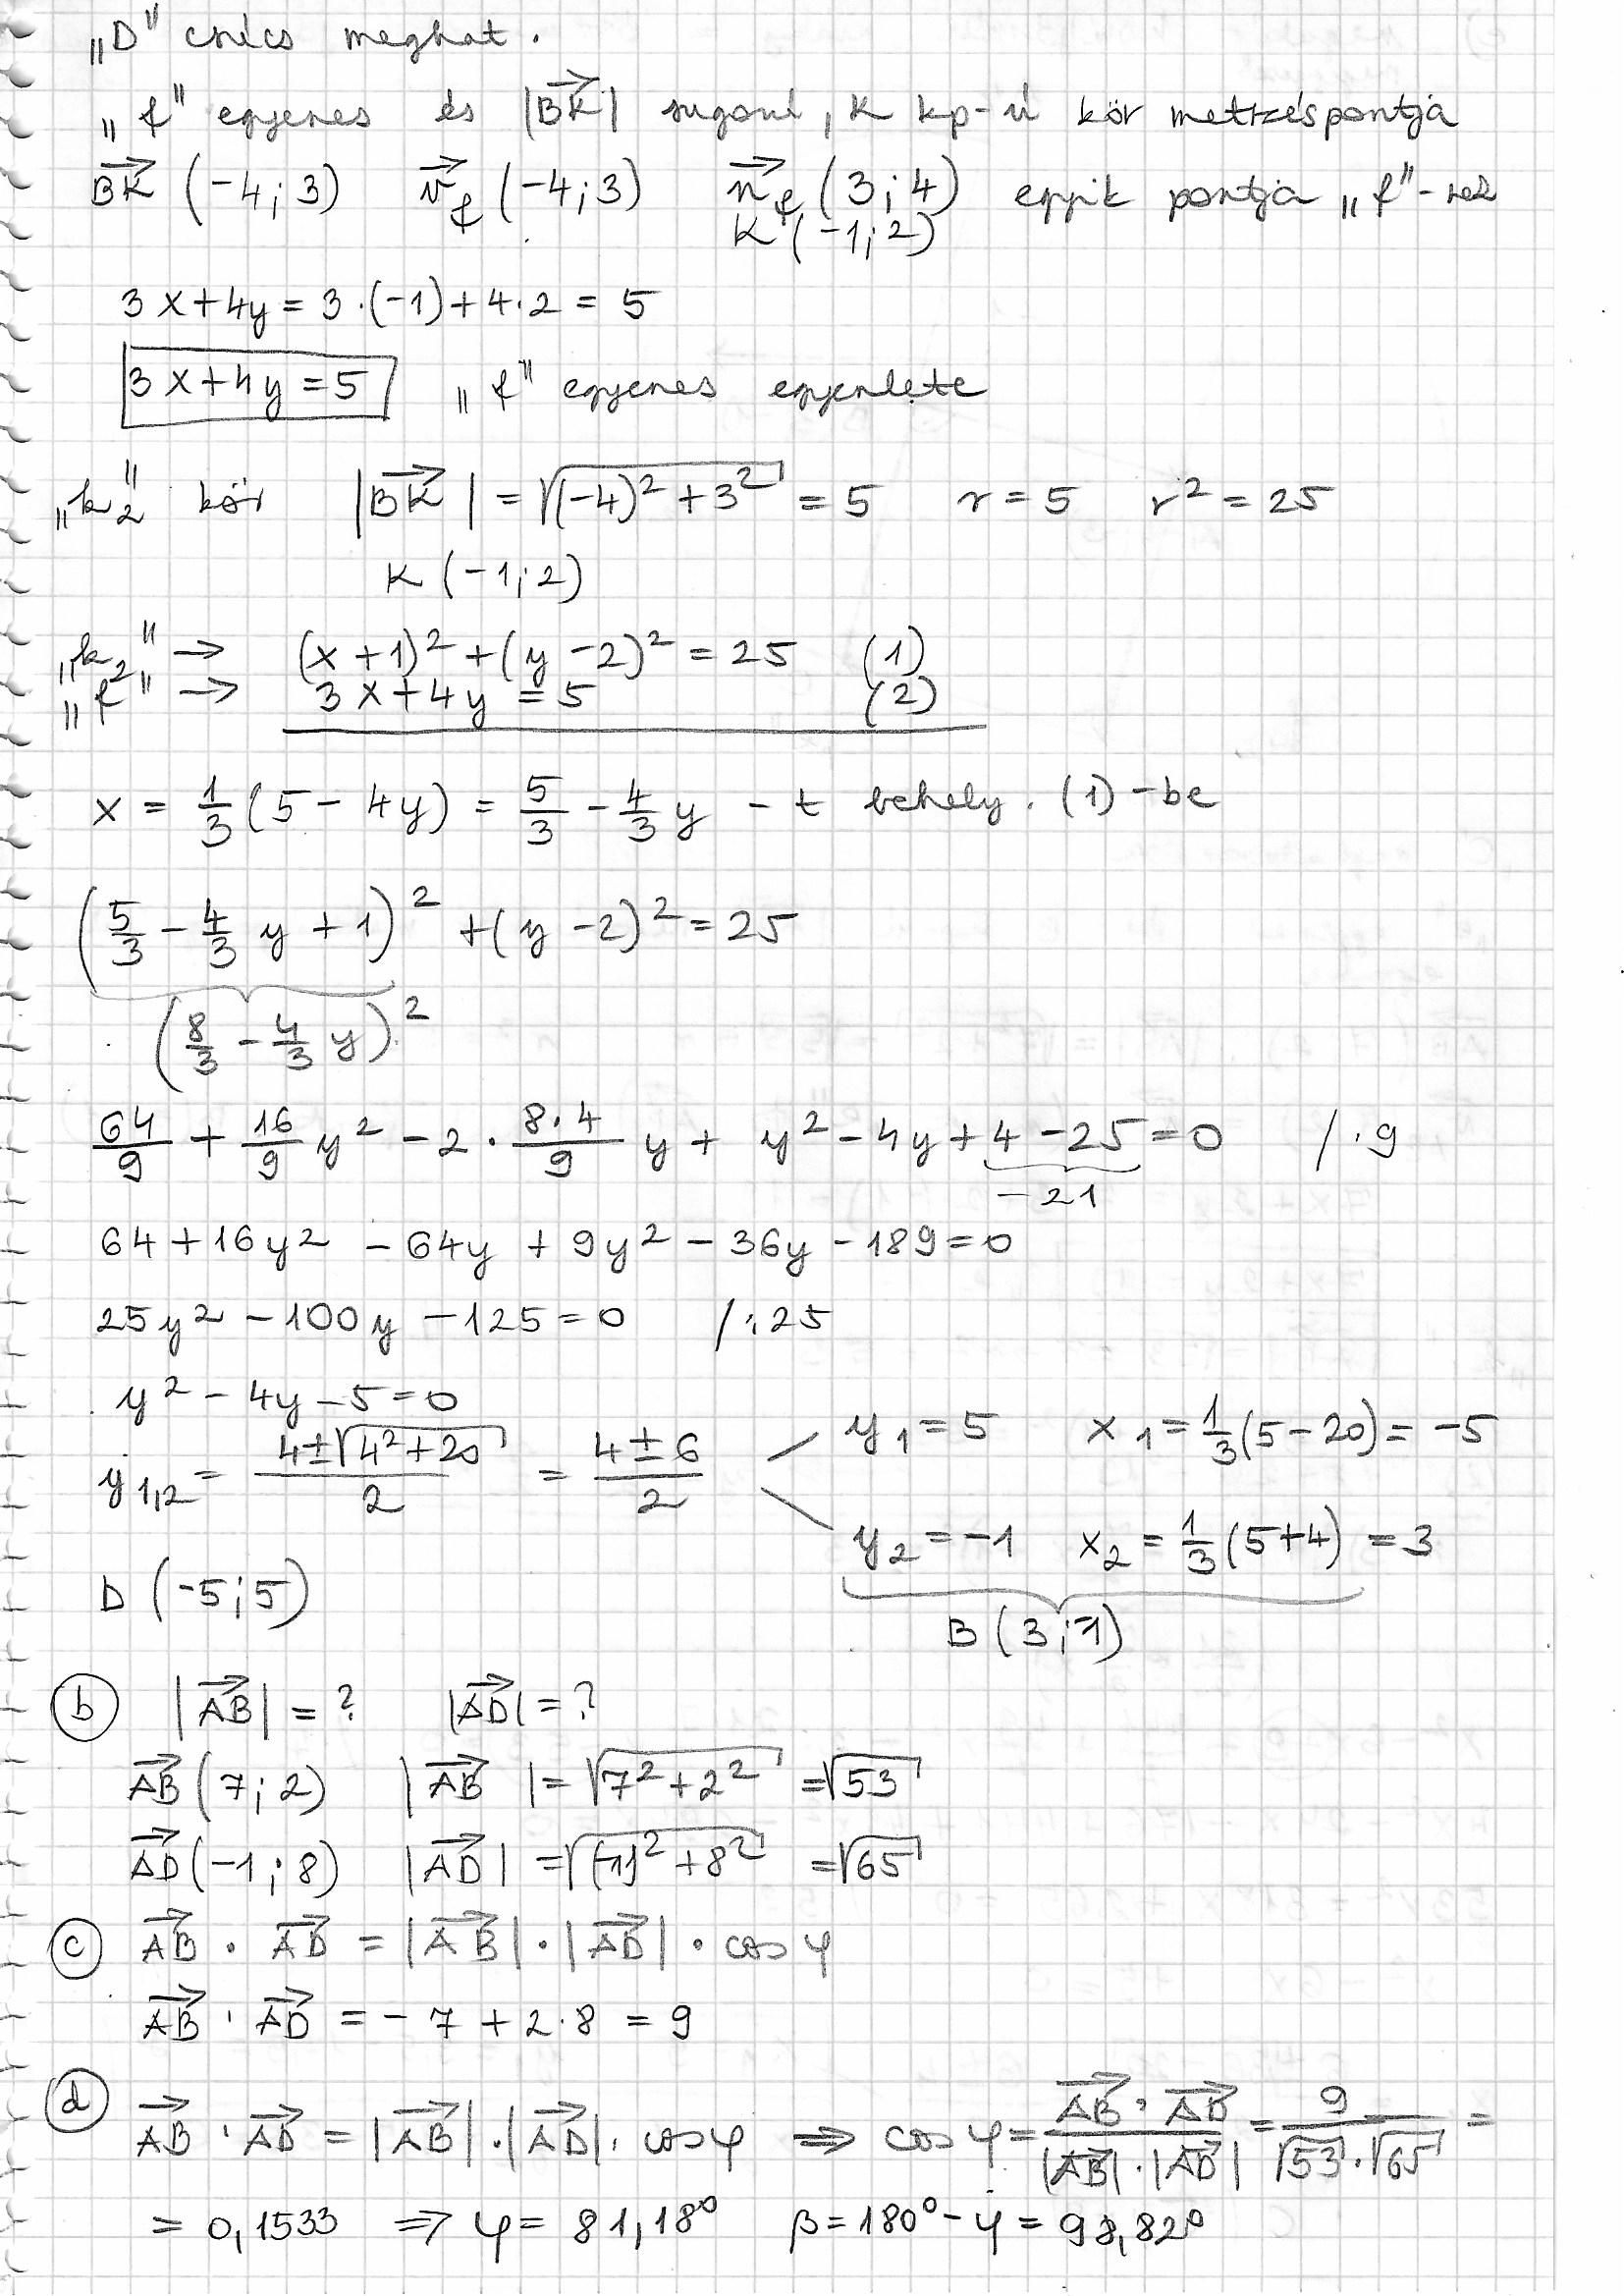 „D” csúcs meghat.
„f” egyenes és |BK→| sugarú, K kp-ú kör metszéspontja
BK→ (-4; 3) v→f (-4; 3) n→f (3; 4) egyik pontja „f”-nek
K (-1; 2)
3x+4y = 3·(-1)+4·2 = 5
3x+4y = 5 „f” egyenes egyenlete
„k₂” kör |BK→| = √((-4)²+3²) = 5 r = 5 r² = 25
K (-1; 2)
„k₂” → (x+1)²+(y-2)² = 25 (1)
„f” → 3x+4y = 5 (2)
x = 1/3 (5-4y) = 5/3 - 4/3 y -t behely. (1)-be
(5/3 - 4/3 y + 1)² + (y-2)² = 25
(8/3 - 4/3 y)²
64/9 + 16/9 y² - 2 · 8·4/9 y + y² - 4y + 4 - 25 = 0 /·9
-21
64 + 16y² - 64y + 9y² - 36y - 189 = 0
25y² - 100y - 125 = 0 /:25
y² - 4y - 5 = 0
y₁,₂ = (4±√(4²+20))/2 = (4±6)/2 y₁ = 5 x₁ = 1/3 (5-20) = -5
y₂ = -1 x₂ = 1/3 (5+4) = 3
D (-5; 5) B (3; -1)
b |AB→| = ? |AD→| = ?
AB→ (7; 2) |AB→| = √(7²+2²) = √53
AD→ (-1; 8) |AD→| = √((-1)²+8²) = √65
c AB→ · AD→ = |AB→| · |AD→| · cos φ
AB→ · AD→ = -7 + 2·8 = 9
d AB→ · AD→ = |AB→| · |AD→| · cos φ ⇒ cos φ = (AB→ · AD→)/(|AB→| · |AD→|) = 9/(√53 · √65) =
= 0,1533 ⇒ φ = 81,18° β = 180° - φ = 98,82°